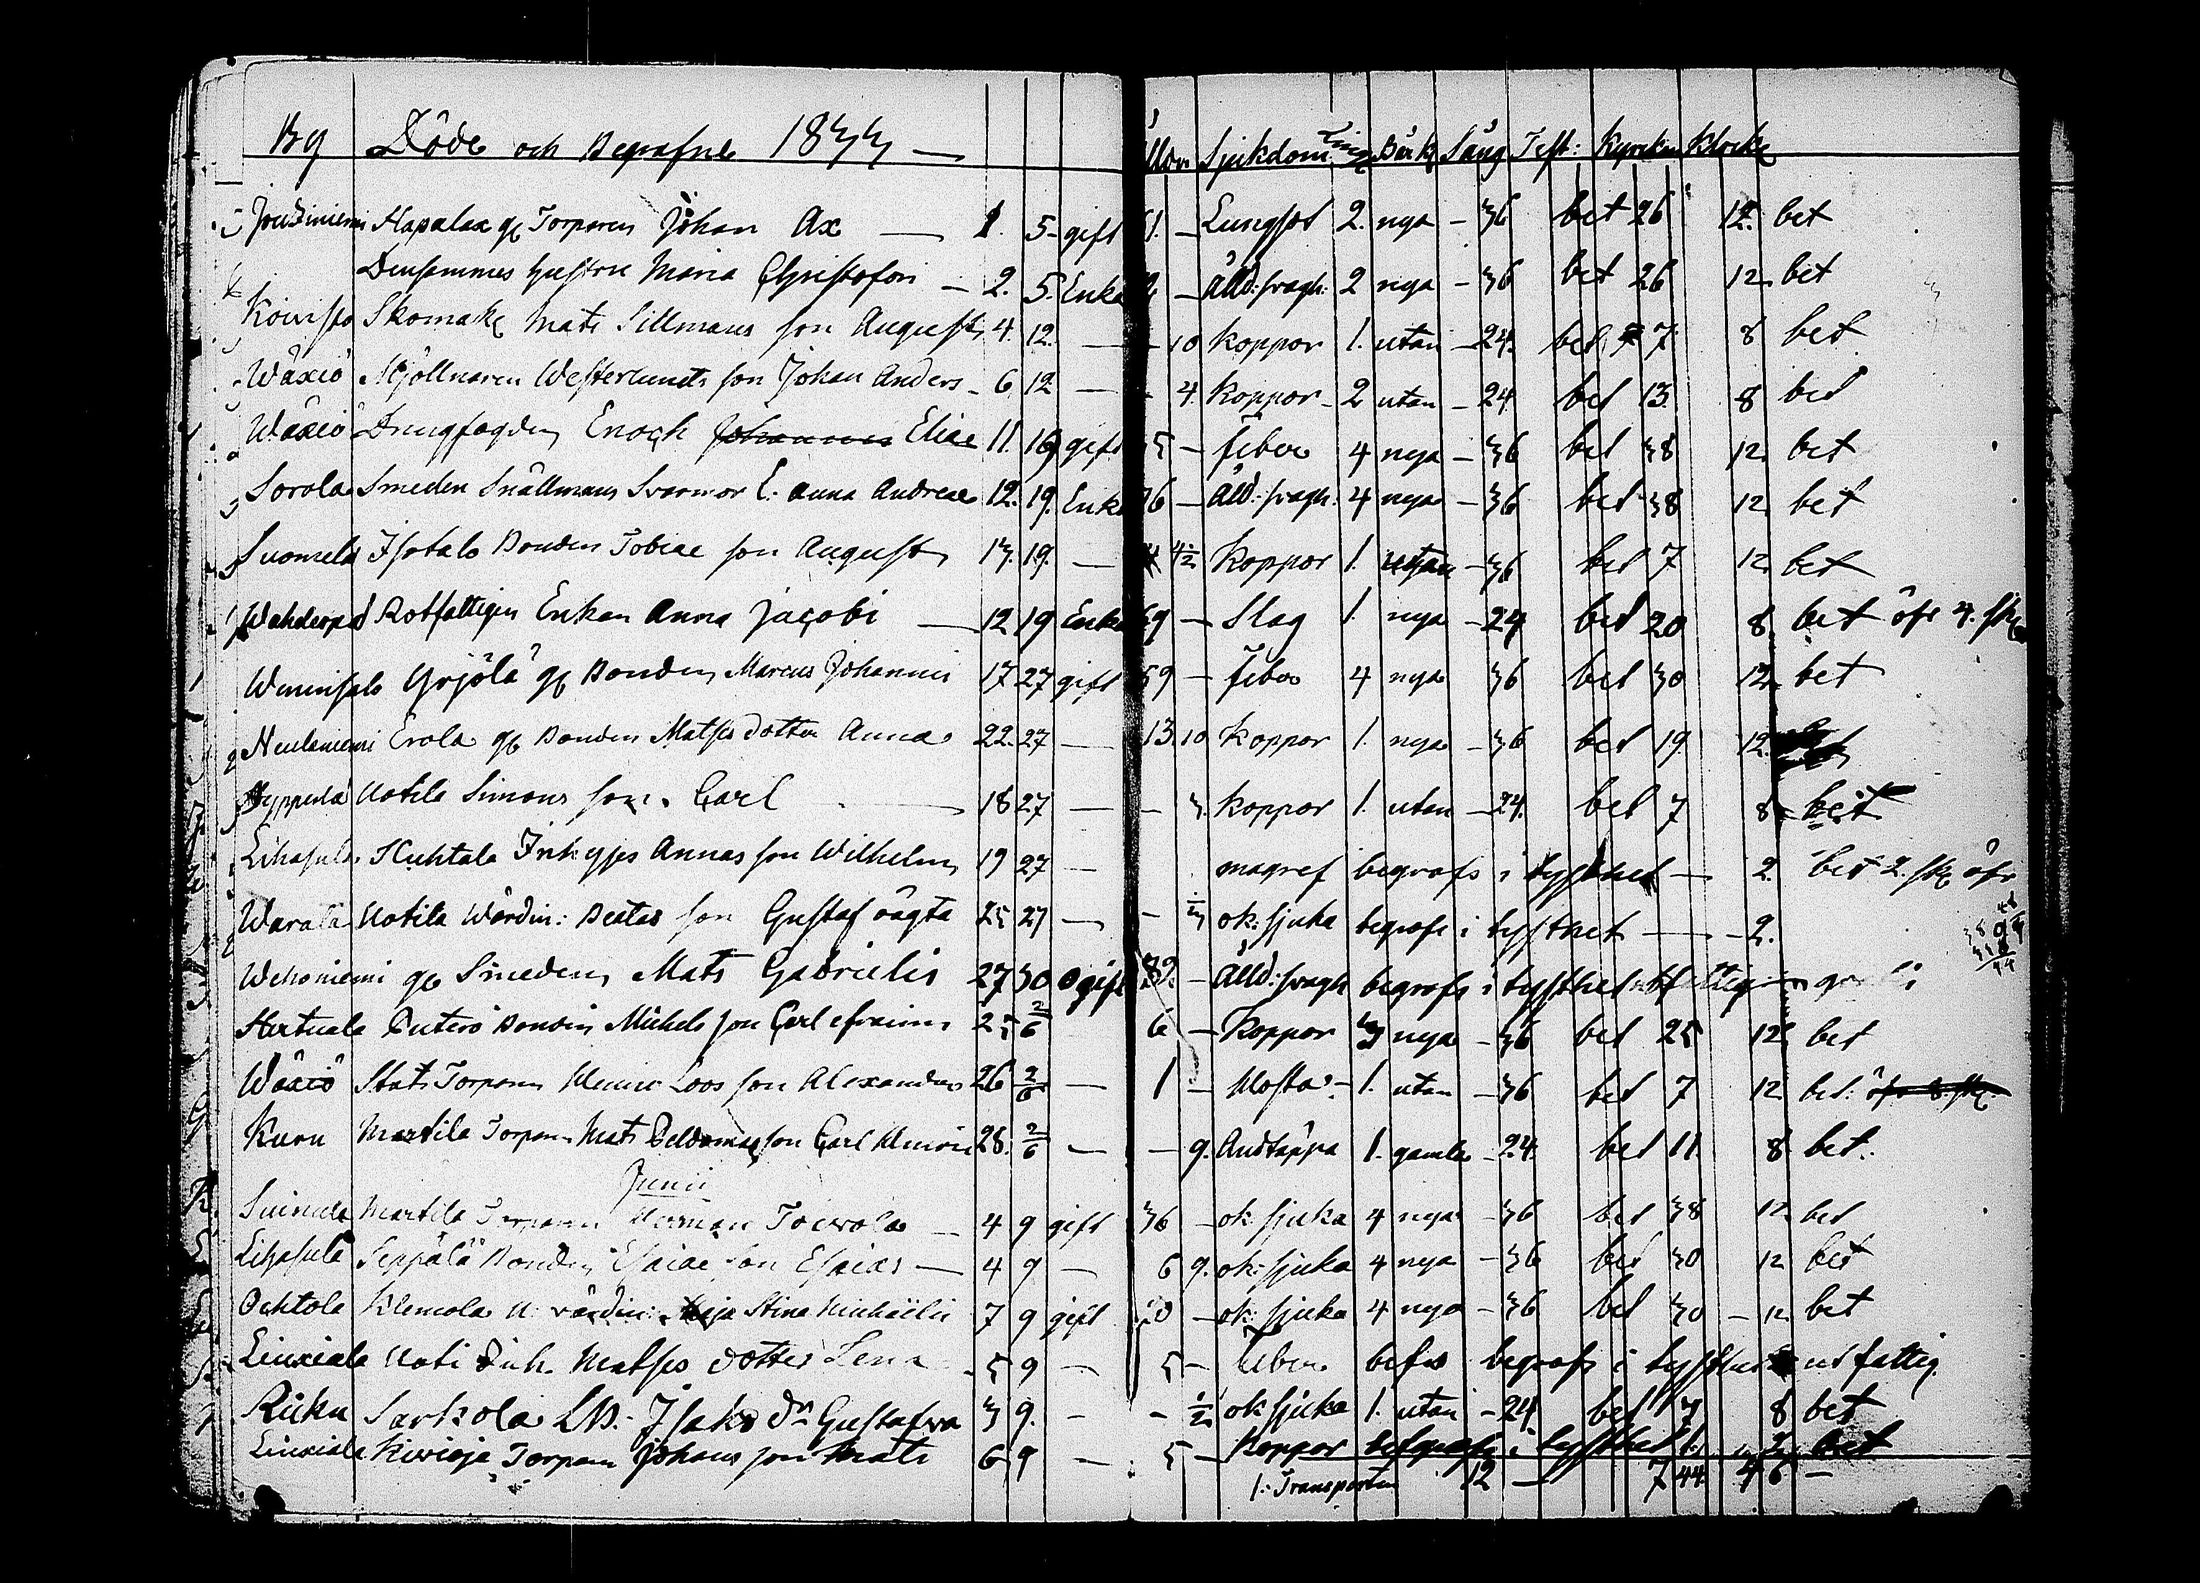 By Döde och Begrafne 1833 — Ålder Sjukdom Ring Bårk Sång Test: Kyrckan Klocka
Jouziniemi Hapalax gl Torparen Johan Ax — 1. 5 gift 61. — Lungsot 2. nya — 36 bet 26 12. bet
Densammes hustru Maria Christofori — 2. 5. Enka — Ålld: svagh: 2 nya — 36 bet 26 12 bet
Koivisto Skomak Mats Sillmans son August 4. 12. — 10 koppor 1. utan — 24. bet 7 8 bet
Wäxiö Mjöllnaren Westerlunds son Johan Anders — 6 12 — - 4. koppor — 2 utan — 24. bet 13. 8 bet
Wäxiö Drengfogden Enoch Johannis Eliæ 11. 19 gift 35 — feber 4 nya — 36 bet 38 12. bet
Sorola Smeden Snällmans Svärmor E. Anna Andreæ 12. 19. Enka 76 — Ålld: svagh: 4 nya — 36 bet 38 12 bet
Suomela Isotalo Bonden Tobiæ son August 13. 19. — 4½ Koppor 1. utan — 36 bet 7 12 bet
Rotfattigen Enkan Anna Jacobi — 12 19 Enka 69 — Slag 1. nya — 24 bet 20 8 bet öfr 4. sk
Wenninsalo Yrjölä gl Bonden Marcus Johannis 17 27 gift 59 — feber 4 nya 36 bet 30 12. bet
Neulaniemi Erola gl Bonden Matses dotter Anna 22. 27 — 13. 10 Koppor 1. nya — 36 bet 19 12.
Hypperlä Uotila Simons son. Carl — 18 27 — — 3. koppor 1. utan — 24. bet 7 8 bet
Lihasula Huhtala Inhyses Annas son Wilhelm 19 27 — magref begrafs i tysthet — 2. bet 2. sk öfr
Warala Uotila Wärdin: Beatas son Gustaf oägta 25 27 — — ok: sjuka begrafs i tysthet — 2.
Wehoniemi gl Smeden Mats Gabrielis 27 30 Ogift 82. — Ålld: svagh begrafs i tysthet utfattig
Hertuala Bonden Michels son Carl Efraim 25 2/6 6 — Koppor 3 nya — 36 bet 25 12 bet
Wäxiö Stats Torparen Loos son Alexander 26 2/6 — 1 — 1. utan — 36 bet 7 12 bet: öfr 8. sk.
Kuru Marttila Torparen Mats son Carl 28. 2/6 — — 9. Andtäppa 1. gamla — 24. bet 11. 8 bet.
Junii
Suinula Marttila Torparen Herman Toivola — 4 9 gift 36 — ok: sjuka 4 nya — 36 bet 38 12 bet
Lihasula Seppälä Bonden Esaiæ son Esaias — 4 9 — 6 9. ok: sjuka 4 nya — 36 bet 30 12 bet
Ochtola Klemola u: värdin: Maja Stina Michaelis 7 9 gift — ok: sjuka 4 nya — 36 bet 30 — 12. bet
Liuxiala Uoti Inh. Matses dotter Lena 5 9 — 5 — feber. begrafs i tysthet utfattig
Riicku Sarkola LB: Isaks dr Gustafva 3 9. — — ½ ok sjuka 1. utan — 24 bet 7 8 bet
Liuxiala Kivioja Torparen Johans son Mats 6 9 — 5 — Koppor begrafs i tysthet 2 bet
1: Transporten 12 — 7 44 4 6 —